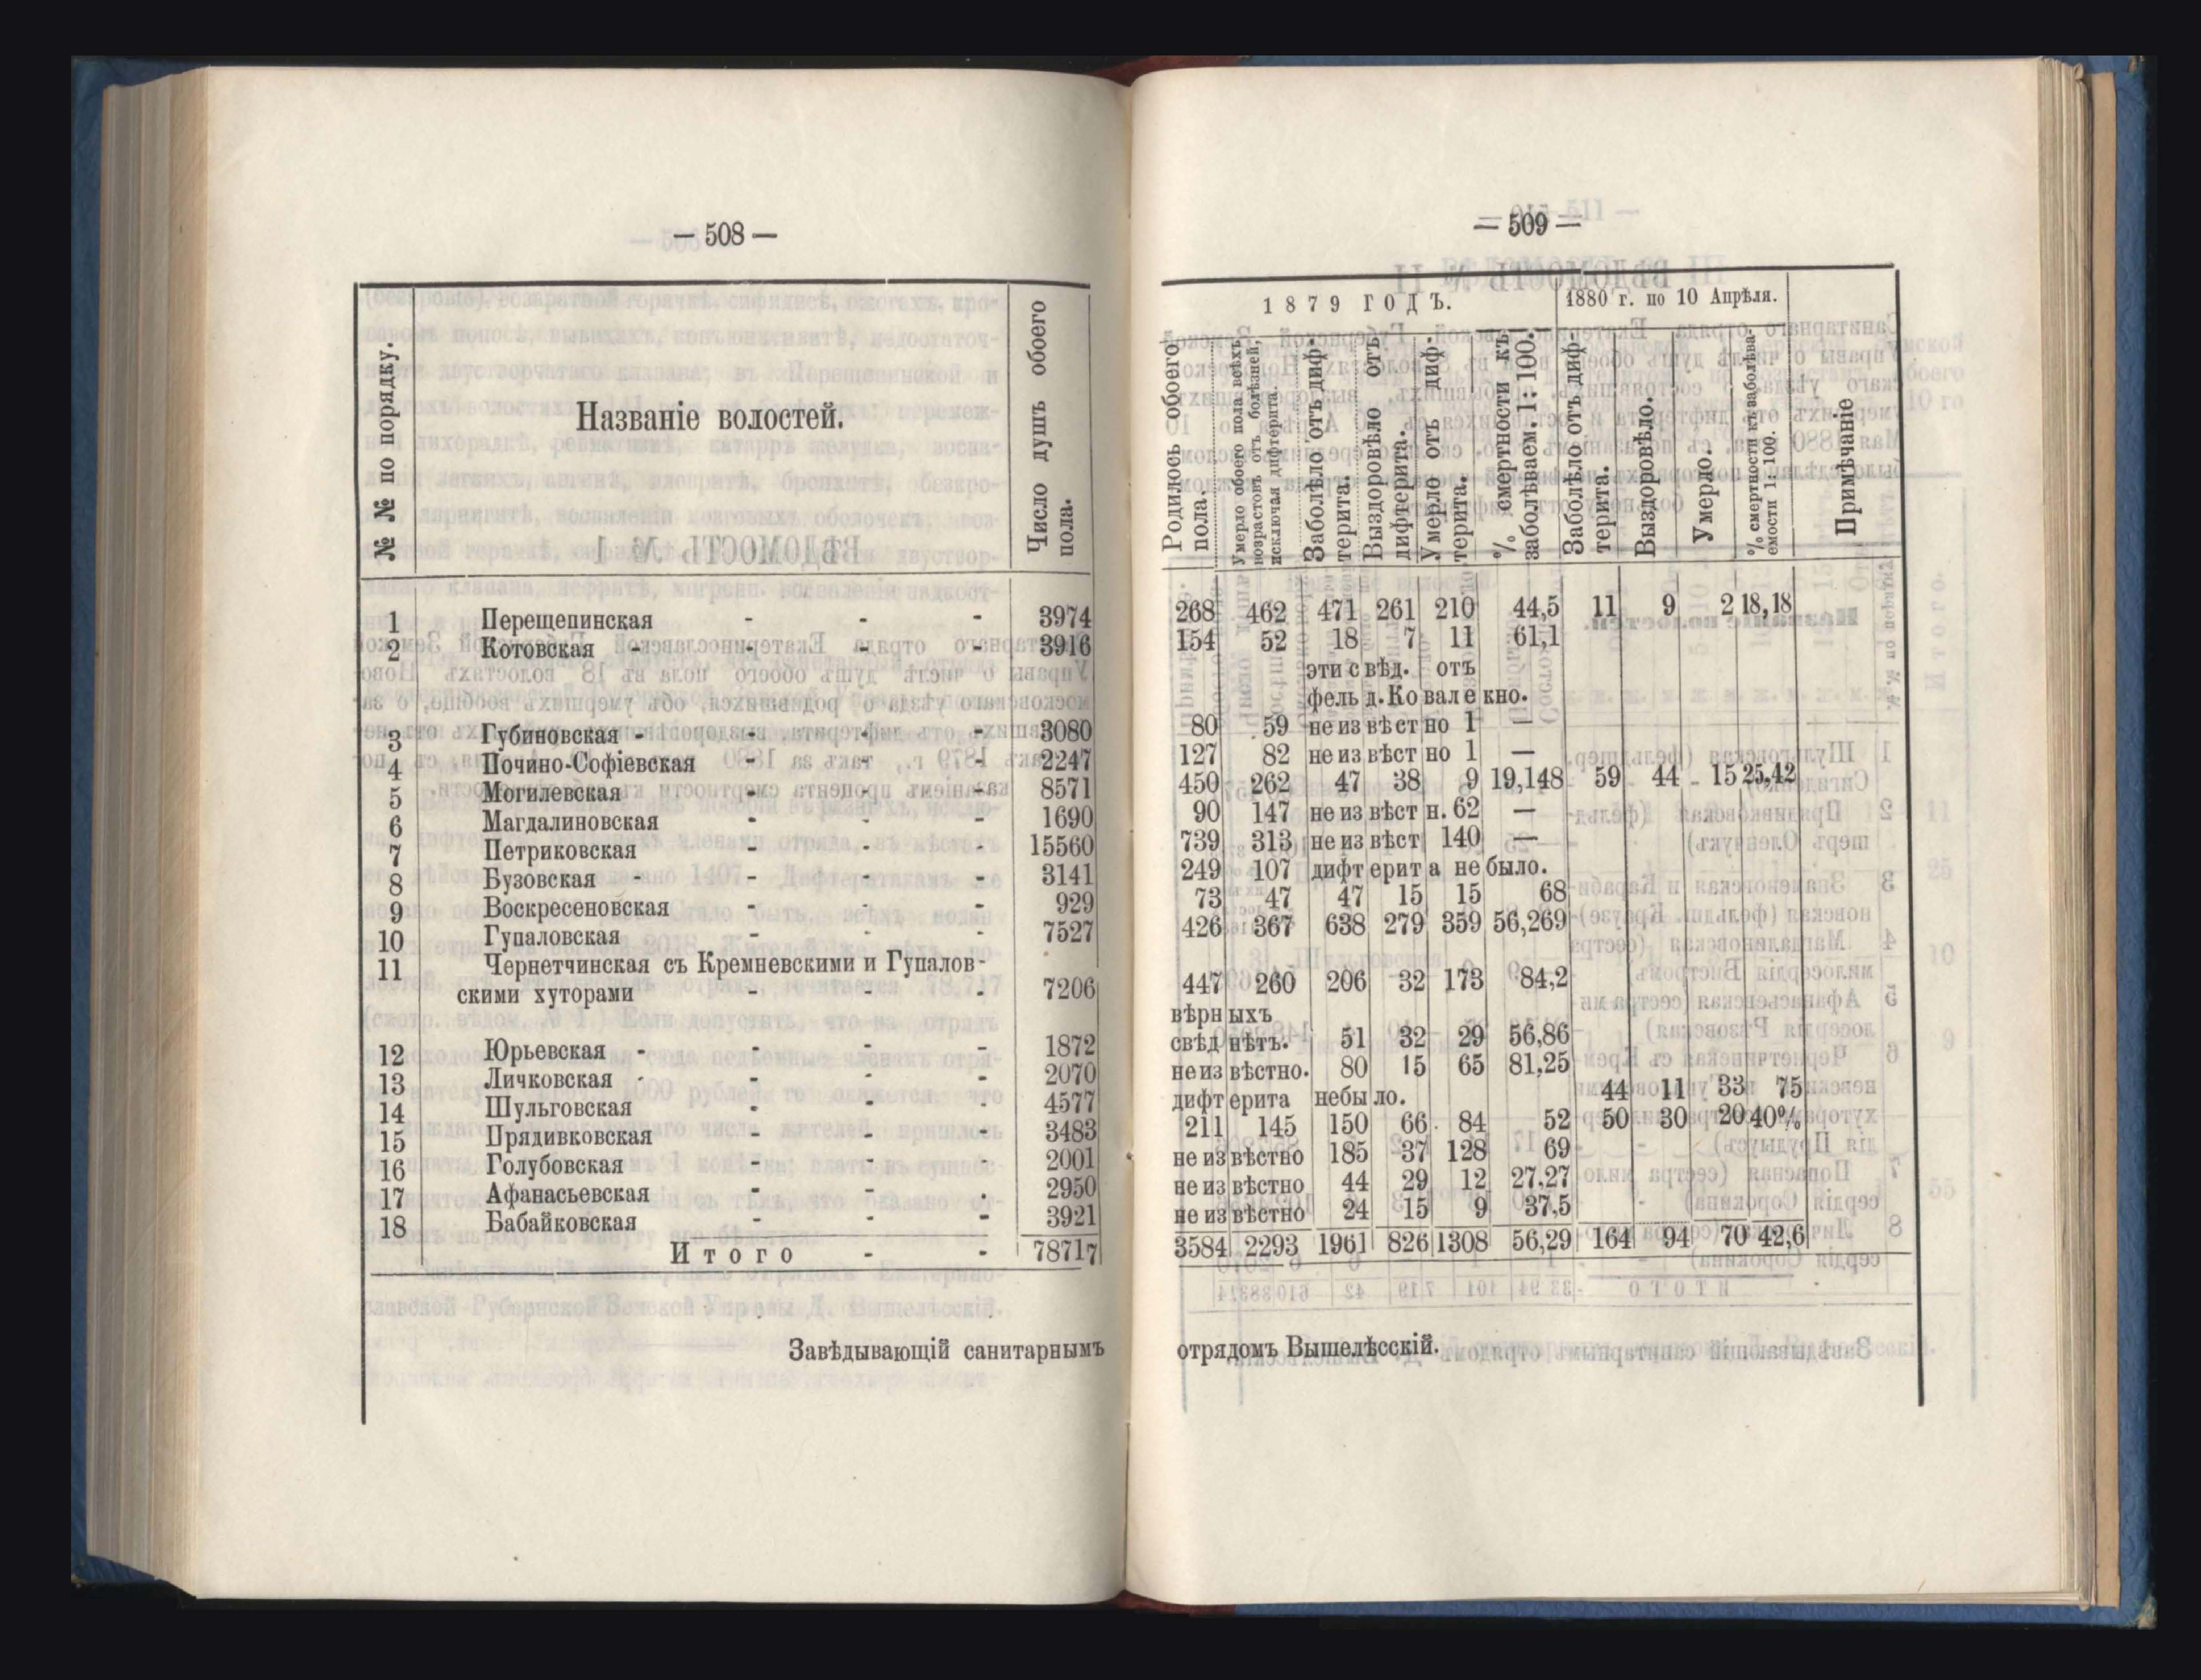 — 508 —
№ № по порядку.
Названіе волостей.
Число душъ обоего
пола.
1 Перещепинская - - - 3974
2 Котовская - - - - 3916
3 Губиновская - - - - 3080
4 Почино-Софіевская - - - 2247
5 Могилевская - - - 8571
6 Магдалиновская - - - 1690
7 Петриковская - - - 15560
8 Бузовская - - - - 3141
9 Воскресеновская - - - 929
10 Гупаловская - - - 7527
11 Чернетчинская съ Кремневскими и Гупалов-
скими хуторами - - - 7206
12 Юрьевская - - - - 1872
13 Личковская - - - - 2070
14 Шульговская - - - 4577
15 Прядивковская - - - 3483
16 Голубовская - - - 2001
17 Афанасьевская - - . 2950
18 Бабайковская - - - 3921
Итого - - 78717
Завѣдывающій санитарнымъ
— 509 —
1879 ГОДЪ.
1880 г. по 10 Апрѣля.
Родилось обоего
пола.
Умерло обоего пола всѣхъ
возрастовъ отъ болѣзней,
исключая дифтерита.
Заболѣло отъ диф-
терита.
Выздоровѣло отъ
дифтерита.
Умерло отъ диф-
терита.
% смертности къ
заболѣваем. 1: 100.
Заболѣло отъ диф-
терита.
Выздоровѣло.
Умерло.
% смертности къ заболѣва-
емости 1: 100.
Примѣчаніе
268 462 471 261 210 44,5 11 9 2 18,18
154 52 18 7 11 61,1
эти свѣд. отъ
фельд. Ковалекно.
80 59 неизвѣстно 1 —
127 82 неизвѣстно 1 —
450 262 47 38 9 19,148 59 44 15 25,42
90 147 неизвѣстн. 62 —
739 313 неизвѣст 140 —
249 107 дифтерита не было.
73 47 47 15 15 68
426 367 638 279 359 56,269
447 260 206 32 173 84,2
вѣрныхъ
свѣд нѣтъ. 51 32 29 56,86
неизвѣстно. 80 15 65 81,25
44 11 33 75
дифтерита небыло.
211 145 150 66 84 52 50 30 20 40%
неизвѣстно 185 37 128 69
неизвѣстно 44 29 12 27,27
неизвѣстно 24 15 9 37,5
3584 2293 1961 826 1308 56,29 164 94 70 42,6
отрядомъ Вышелѣсскій.